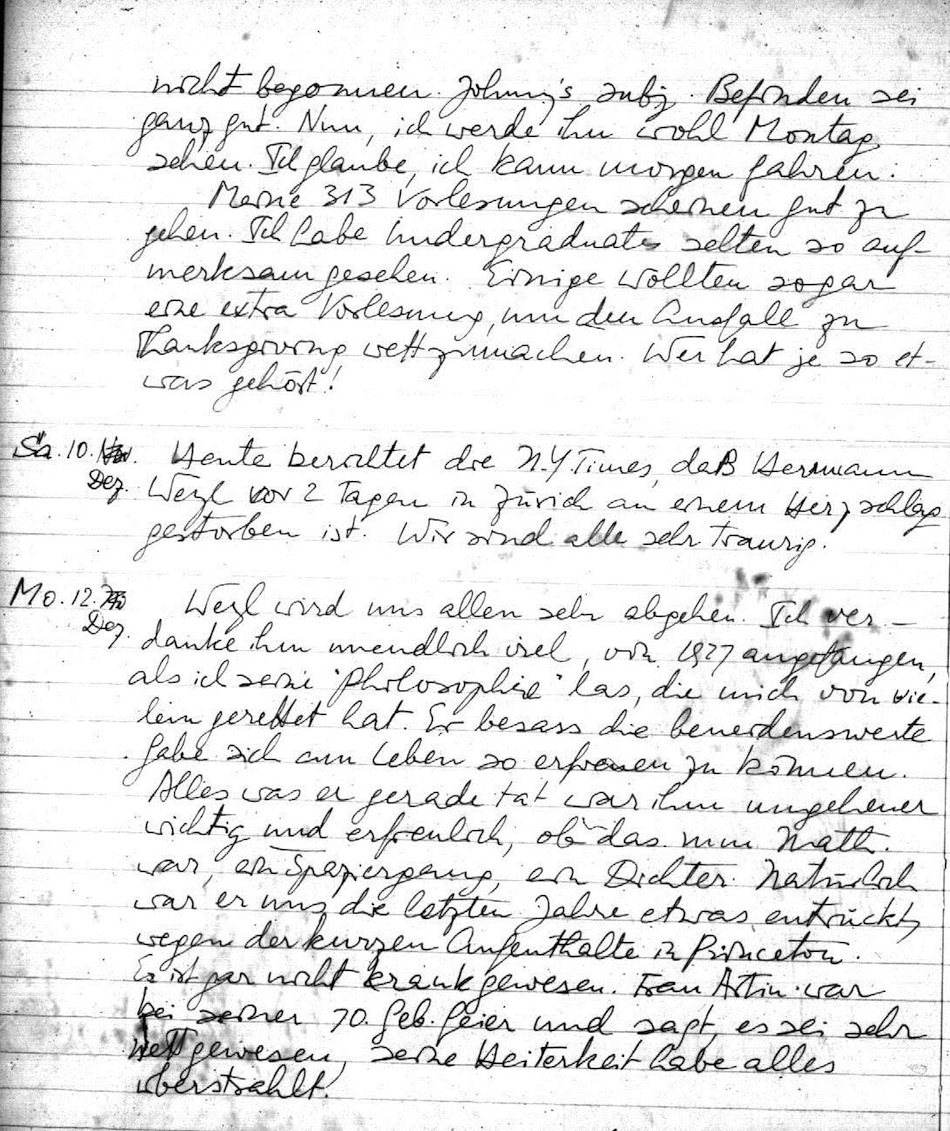 nicht begonnen. Johnny's subj. Befinden sei
ganz gut. Nun, ich werde ihn wohl Montag
sehen. Ich glaube, ich kann morgen fahren.
Meine 313 Vorlesungen scheinen gut zu
gehen. Ich habe Undergraduates selten so auf-
merksam gesehen. Einige wollten sogar
eine extra Vorlesung, um den Ausfall zu
Thanksgiving wettzumachen. Wer hat je so et-
was gehört!
Sa. 10. Heute berichtet die N.Y. Times, daß Hermann
Dez. Weyl vor 2 Tagen in Zürich an einem Herzschlag
gestorben ist. Wir sind alle sehr traurig.
Mo. 12. Weyl wird uns allen sehr abgehen. Ich ver-
Dez. danke ihm unendlich viel, von 1927 angefangen,
als ich seine "Philosophie" las, die mich von vie-
lem gerettet hat. Er besass die beneidenswerte
Gabe sich am Leben so erfreuen zu können.
Alles was er gerade tat war ihm ungeheuer
wichtig und erfreulich, ob das nun Math.
war, ein Spaziergang, ein Dichter. Natürlich
war er uns die letzten Jahre etwas entrückt,
wegen der kurzen Aufenthalte in Princeton.
Er ist gar nicht krank gewesen. Frau Artin war
bei seiner 70. Geb. Feier und sagt, es sei sehr
nett gewesen, seine Heiterkeit habe alles
überstrahlt.